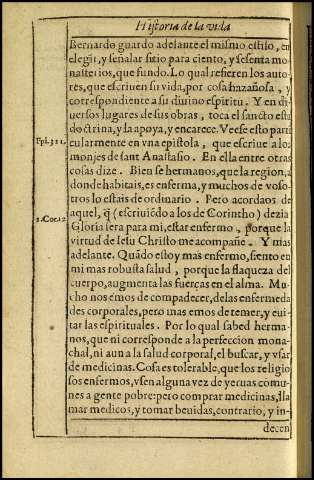 Historia de la vida
Bernardo guardo adelante el mismo estilo, en
elegir, y señalar sitio para ciento, y sesenta mo
nasterios, que fundo. Lo qual refieren los auto-
res, que escriuen su vida, por cosa hazañosa, y
correspondiente a su diuino espiritu. Y en di
uersos lugares de sus obras, toca el sancto esta
doctrina, y la apoya, y encarece. Veese esto part
Epi.321. cularmente en vna epistola, que escriue a los
monjes de sant Anastasio. En ella entre otras
cosas dize. Bien se hermanos, que la region, a
donde habitais, es enferma, y muchos de voso-
tros lo estais de ordinario. Pero acordaos de
2.Cor.12 aquel, q̃ (escriuiẽdo a los de Corintho) dezia
Gloria sera para mi, estar enfermo, porque la
virtud de Iesu Christo me acompañe. Y mas
adelante. Quãdo estoy mas enfermo, siento en
mi mas robusta salud, porque la flaqueza del
cuerpo, augmenta las fuerças en el alma. Mu
cho nos emos de compadecer, de las enfermeda
des corporales, pero mas emos de temer, y eui-
tar las espirituales. Por lo qual sabed herma-
nos, que ni corresponde a la perfeccion mona-
chal, ni aun a la salud corporal, el buscar, y vsar
de medicinas. Cosa es tolerable, que los religio
sos enfermos, vsen alguna vez de yeruas comu-
nes a gente pobre: pero comprar medicinas, lla
mar medicos, y tomar beuidas, contrario, y in-
decen